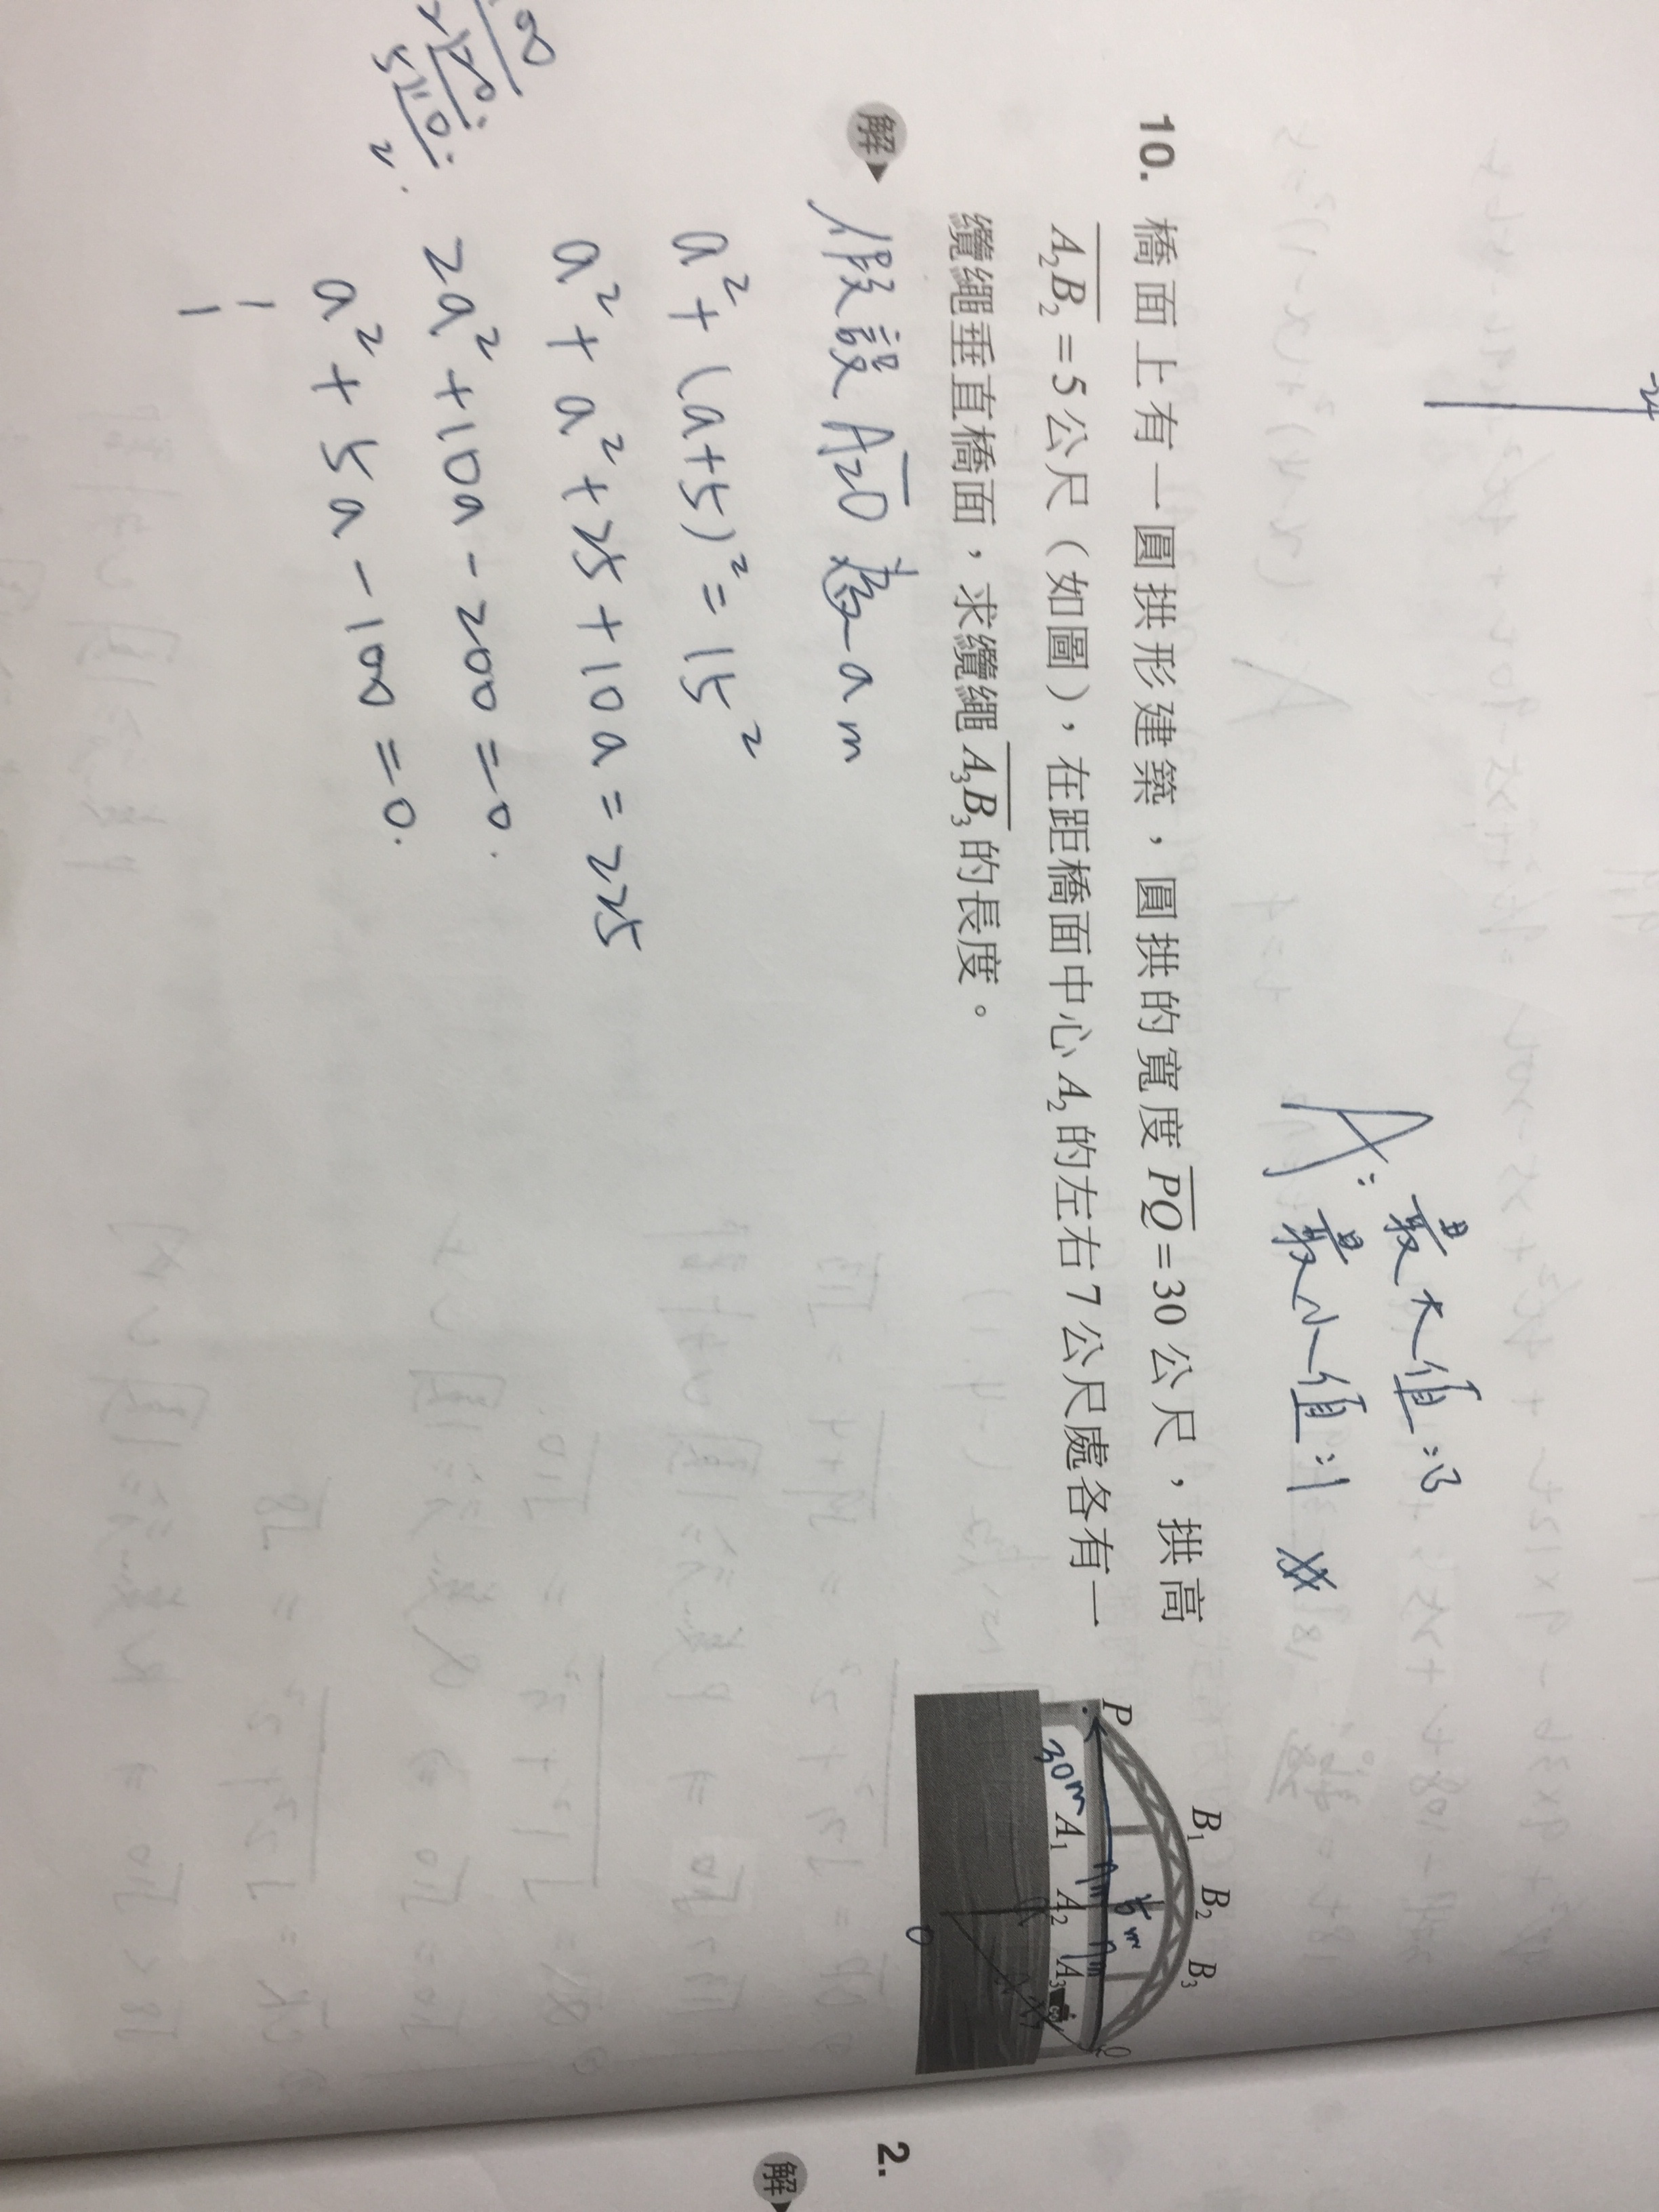 -24
A: 最大值:3
最小值:1
10. 橋面上有一圓拱形建築，圓拱的寬度PQ=30公尺，拱高
A₂B₂=5公尺（如圖），在距橋面中心A₂的左右7公尺處各有一
纜繩垂直橋面，求纜繩A₃B₃的長度。
P B₁ B₂ B₃
30m A₁ A₂ A₃ Q
7m 5m 7m
O
解 假設A₂O為a m
a²+(a+5)²=15²
a²+a²+25+10a=225
2a²+10a-200=0.
a²+5a-100=0.
1
1
2.
解